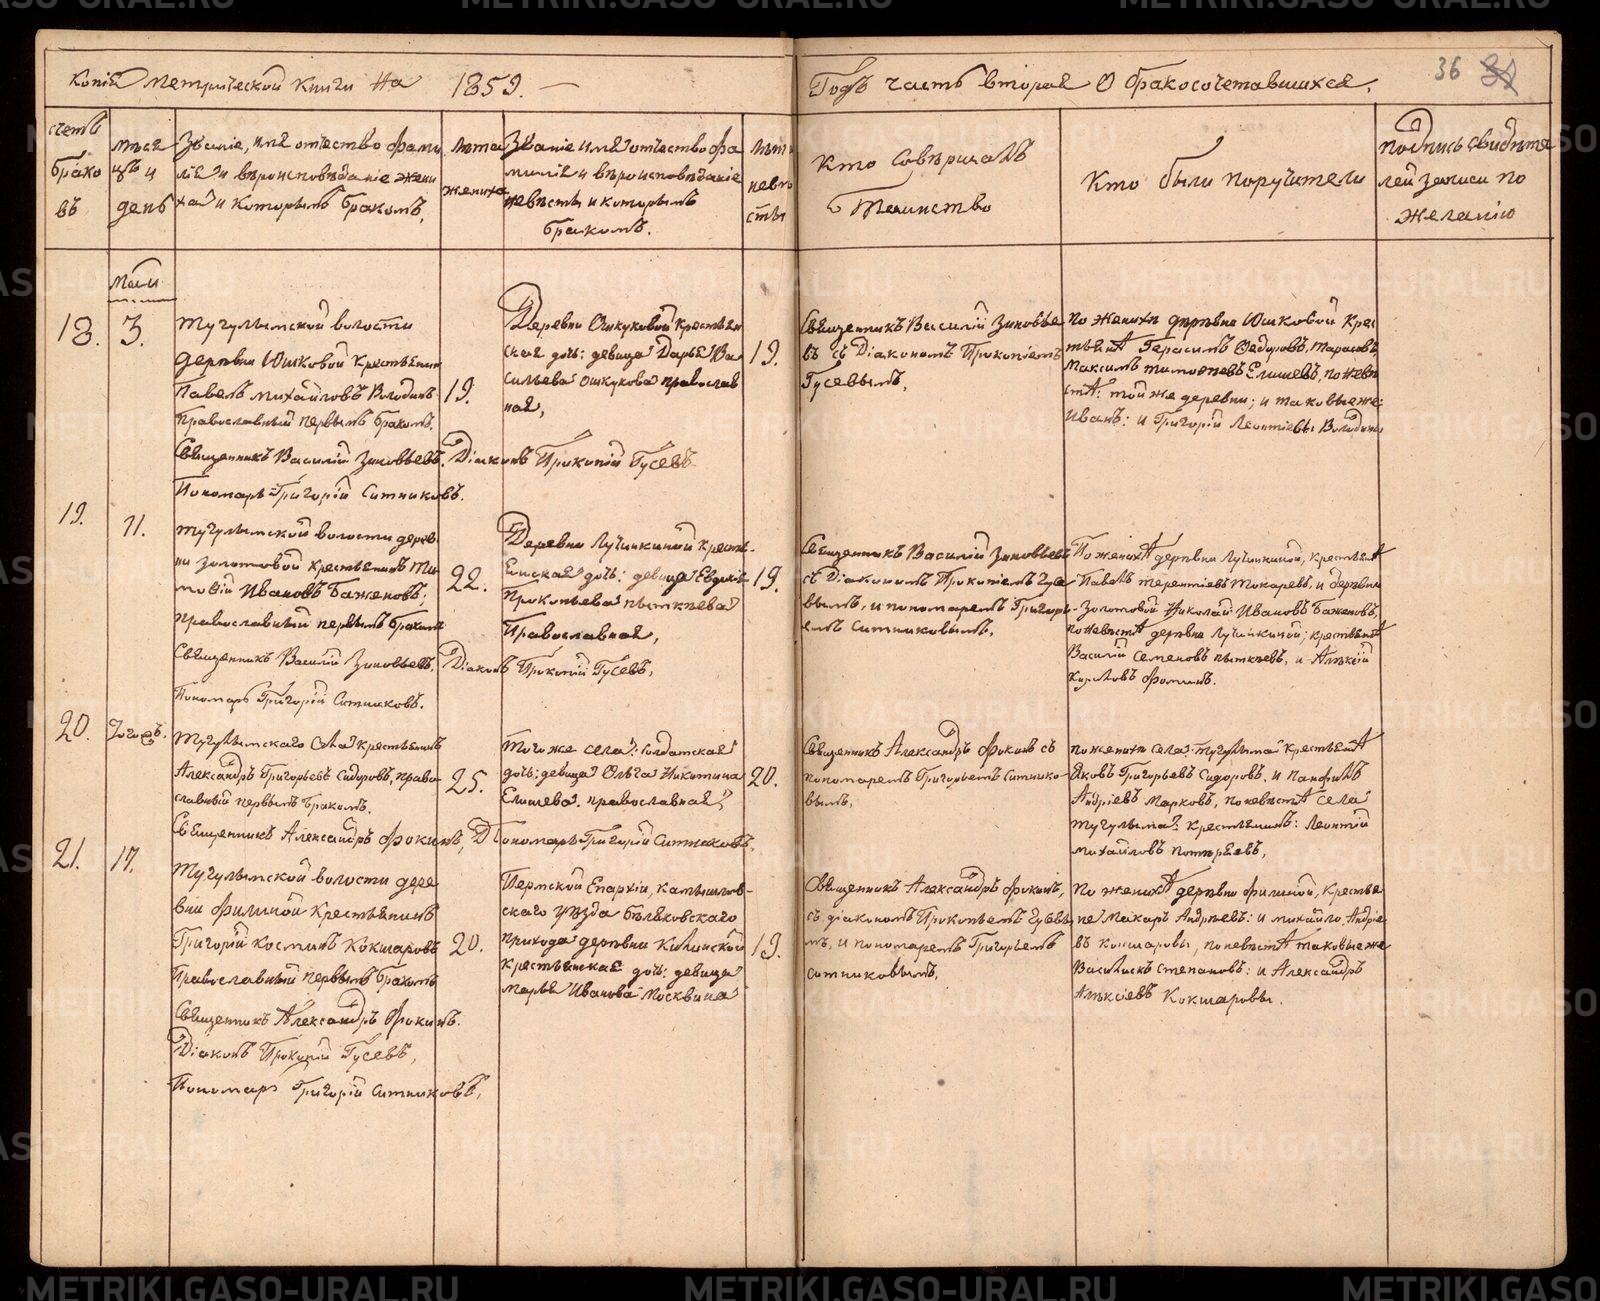 Копія метрической книги на 1859.
Годъ часть вторая О бракосочетавшихся.
36
счетъ
брако
въ
мѣся
цъ и
день
Званіе, имя отчество фами
лія и вѣроисповѣданіе жени
ха и которымъ бракомъ.
Лѣта
жениха
Званіе имя отчество фа
милія и вѣроисповѣданіе
невѣсты и которымъ
бракомъ.
Лѣта
невѣ
сты
Кто совершалъ
Таинство
Кто были поручители
подпись свидѣте
лей записи по
желанію
Маія
18.
3.
Тугулымской волости
деревни Юшковой крестьянинъ
Павелъ Михайловъ Володинъ
Православный первымъ бракомъ.
Священникъ Василій Зиновьевъ. Діаконъ Прокопій Гусевъ
Пономарь Григорій Ситниковъ.
19.
Деревни Ошкуковой крестьян
ская дочь: девица Дарья Ва
сильева Ошкукова православ
ная,
19.
Священникъ Василій Зиновье
въ съ Діакономъ Прокопіемъ
Гусевымъ,
По женихѣ деревни Юшковой крес
тьяна Герасимъ Федоровъ Тарасовъ,
Максимъ Тимофеевъ Елишевъ, по невѣ
стѣ: той же деревни; и таковые же
Иванъ: и Григорій Леонтіевы Володины
19.
11.
Тугулымской волости дерев
ни Золотовой крестьянинъ Ти
мофій Ивановъ Баженовъ;
православный первымъ бракомъ
Священникъ Василій Зиновьевъ. Діаконъ Прокопій Гусевъ,
Пономарь Григорій Ситниковъ.
22.
Деревни Лучинкиной кресть
янская дочь: девица Евдокія
Прокопьева Пыткѣева
Православная,
19.
Священникъ Василій Зиновьевъ
съ Діакономъ Прокопіемъ Гусе
вымъ, и пономаремъ Григорь
емъ Ситниковымъ.
По женихѣ деревни Лучинкиной, крестьянѣ
Павелъ Терентіевъ Токаревъ, и деревни
Золотовой Николай Ивановъ Баженовъ,
по невѣстѣ деревни Лучинкиной; крестьянѣ
Василій Семеновъ Пыткѣевъ, и Алѣксій
Карповъ Фоминъ.
20.
Тогожъ.
Тугулымскаго Села крестьянинъ
Александръ Григорьевъ Сидоровъ, право
славный первымъ бракомъ.
Священникъ Александръ Фокинъ, Пономарь Григорій Ситниковъ.
25.
Того же села: солдатская
дочь; девица Ольга Никитина
Елишева. православная,
20.
Священникъ Александръ Фокинъ съ
пономаремъ Григорьемъ Ситнико
вымъ,
По женихѣ села: Тугулыма крестьянѣ
Яковъ Григорьевъ Сидоровъ, и Панфилъ
Андріевъ Марковъ, по невѣстѣ села
Тугулыма: крестьянинъ: Леонтій
Михайловъ
21.
17.
Тугулымской волости дере
вни Филиной крестьянинъ
Григорій Косминъ Кокшаровъ
Православный первымъ бракомъ
Священникъ Александръ Фокинъ.
Діаконъ Прокопій Гусевъ,
Пономарь Григорій Ситниковъ,
20.
Пермской Епархіи, Камышлов
скаго уѣзда Бѣляковскаго
прихода деревни
крестьянская дочь: девица
Марья Иванова Москвина
19.
Священникъ Александръ Фокинъ,
съ діакономъ Прокопьемъ Гусевы
мъ, и пономаремъ Григорьемъ
Ситниковымъ,
По женихѣ деревни Филиной, крестья
не Макаръ Андрѣевъ: и Михайло Андріе
въ Кокшаровы, по невѣстѣ таковые же
Василискъ Степановъ: и Александръ
Алѣксіевъ Кокшаровы.
METRIKI.GASO-URAL.RU